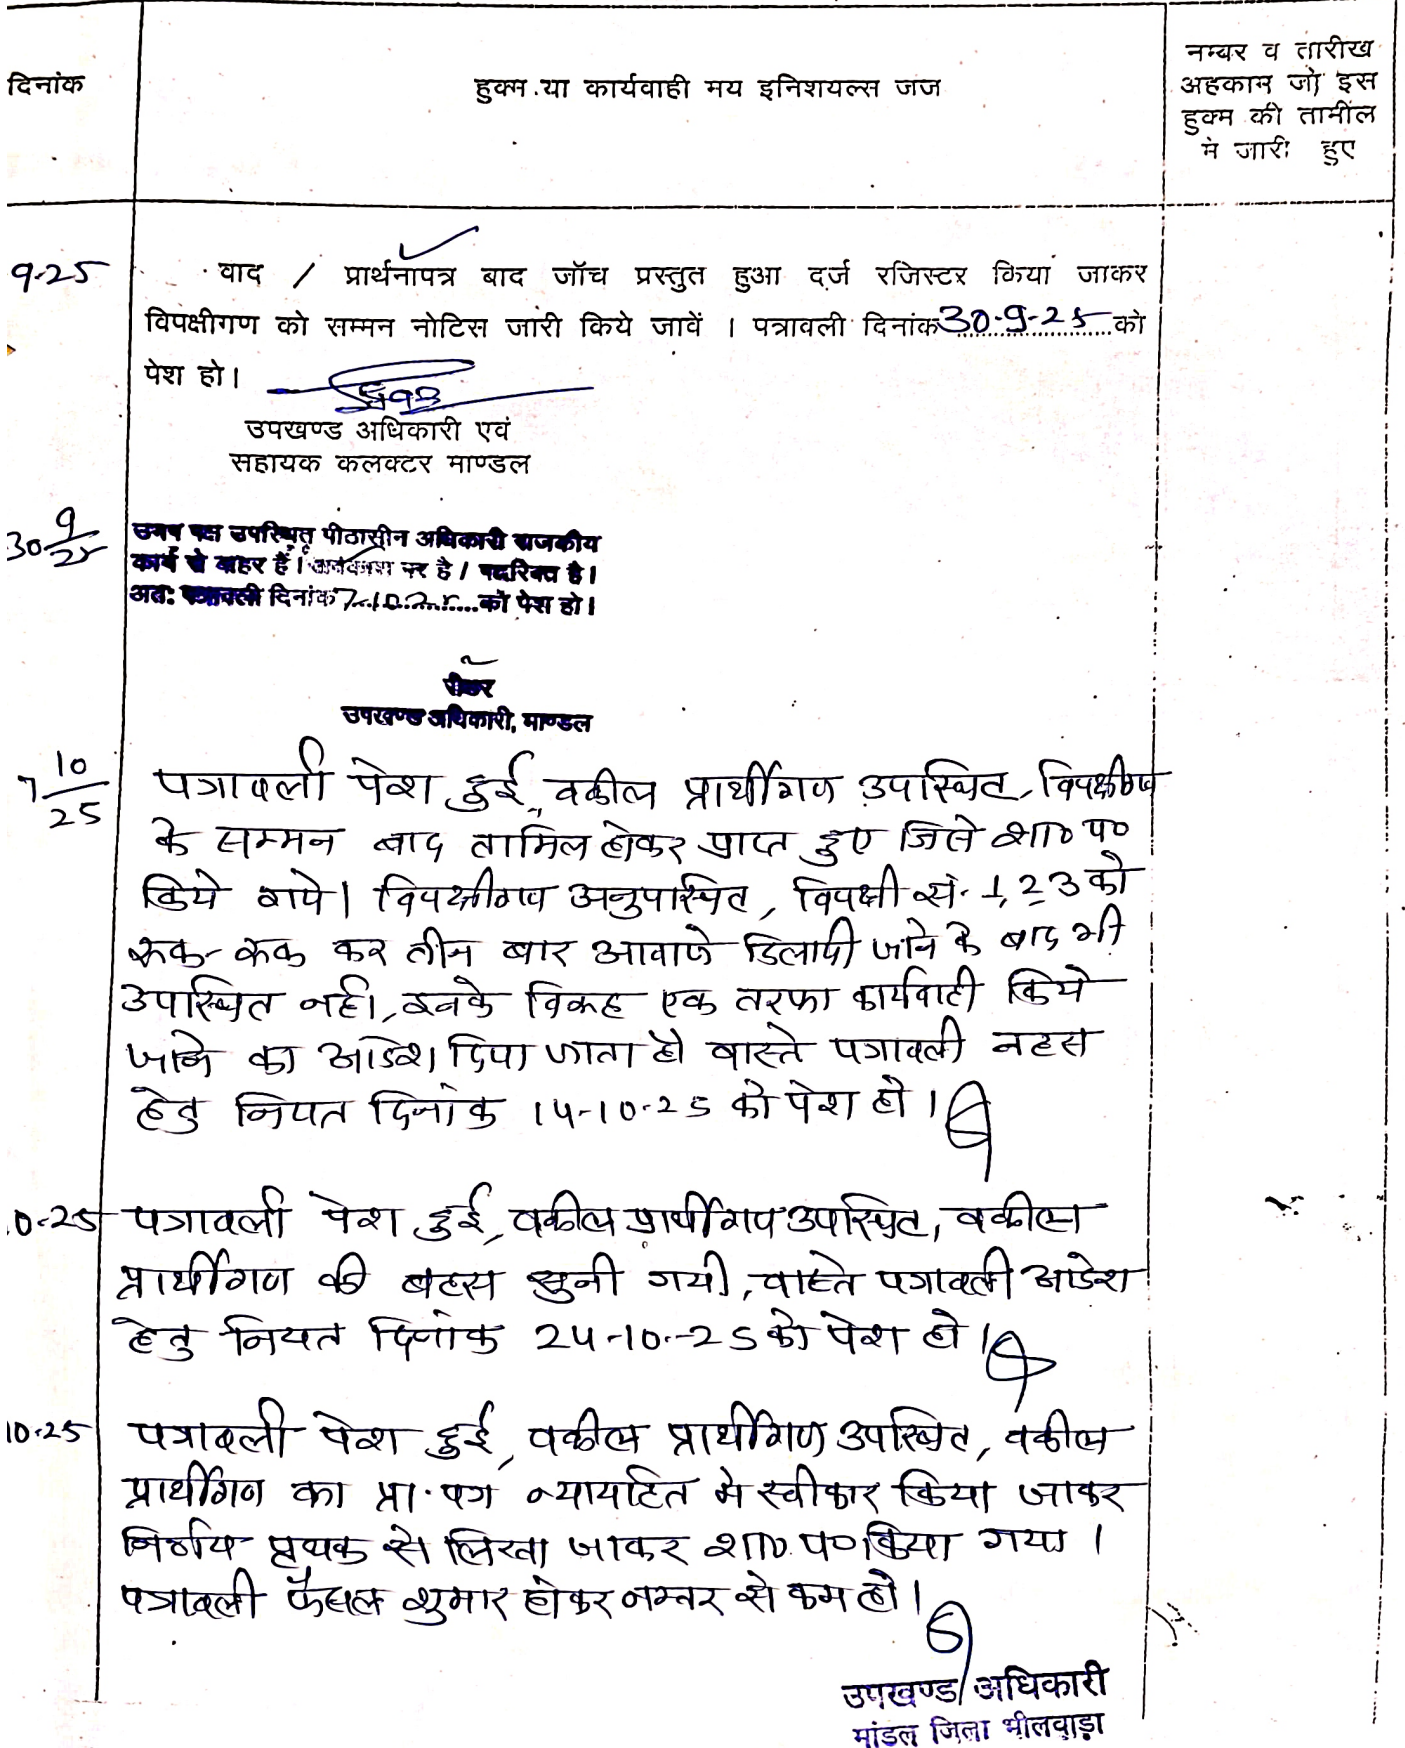 दिनांक
हुक्म या कार्यवाही मय इनिशयल्स जज
नम्बर व तारीख
अहकाम जो इस
हुक्म की तामील
मे जारी हुए
9-25
वाद / प्रार्थनापत्र बाद जॉच प्रस्तुत हुआ दर्ज रजिस्टर किया जाकर
विपक्षीगण को सम्मन नोटिस जारी किये जावें । पत्रावली दिनांक 30-9-25 को
पेश हो।
उपखण्ड अधिकारी एवं
सहायक कलक्टर माण्डल
30 9/25
उभय पक्ष उपस्थित पीठासीन अधिकारी राजकीय
कार्य से बाहर हैं। अवकाश पर है / पदरिक्त है।
अतः पत्रावली दिनांक 7.10.25 को पेश हो।
रीडर
उपखण्ड अधिकारी, माण्डल
7 10/25
पत्रावली पेश हुई, वकील प्रार्थीगण उपस्थित, विपक्षीगण
के सम्मन बाद तामिल होकर प्राप्त हुए जिसे शा० प०
किये गये। विपक्षीगण अनुपस्थित, विपक्षी सं. 1, 2 3 को
रूक-रूक कर तीन बार आवाजे दिलायी जाने के बाद भी
उपस्थित नही, इनके विरूद्ध एक तरफा कार्यवाही किये
जाने का आदेश दिया जाता है वास्ते पत्रावली बहस
हेतु नियत दिनांक 14-10-25 को पेश हो।
0-25
पत्रावली पेश हुई, वकील प्रार्थीगण उपस्थित, वकील
प्रार्थीगण की बहस सुनी गयी, वास्ते पत्रावली आदेश
हेतु नियत दिनांक 24-10-25 को पेश हो।
10-25
पत्रावली पेश हुई, वकील प्रार्थीगण उपस्थित, वकील
प्रार्थीगण का प्रा. पत्र न्यायहित मे स्वीकार किया जाकर
निर्णय पृथक से लिखा जाकर शा० प० किया गया ।
पत्रावली फैसल शुमार होकर नम्बर से कम हो।
उपखण्ड अधिकारी
मांडल जिला भीलवाड़ा